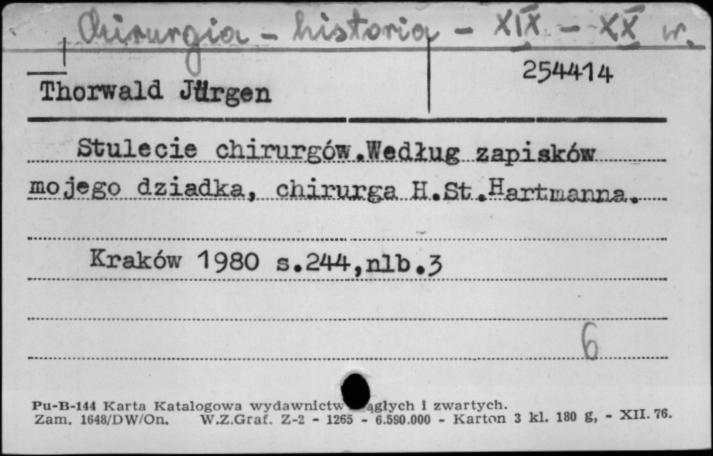 Chirurgia - historia - XIX - XX w.
254414
Thorwald Jürgen
Stulecie chirurgów.Według zapisków
mojego dziadka, chirurga H.St.Hartmanna.
Kraków 1980 s.244,nlb.3
6
Pu-B-144 Karta Katalogowa wydawnictw ągłych i zwartych.
Zam. 1648/DW/On. W.Z.Graf. Z-2 - 1265 - 6.590.000 - Karton 3 kl. 180 g, - XII. 76.